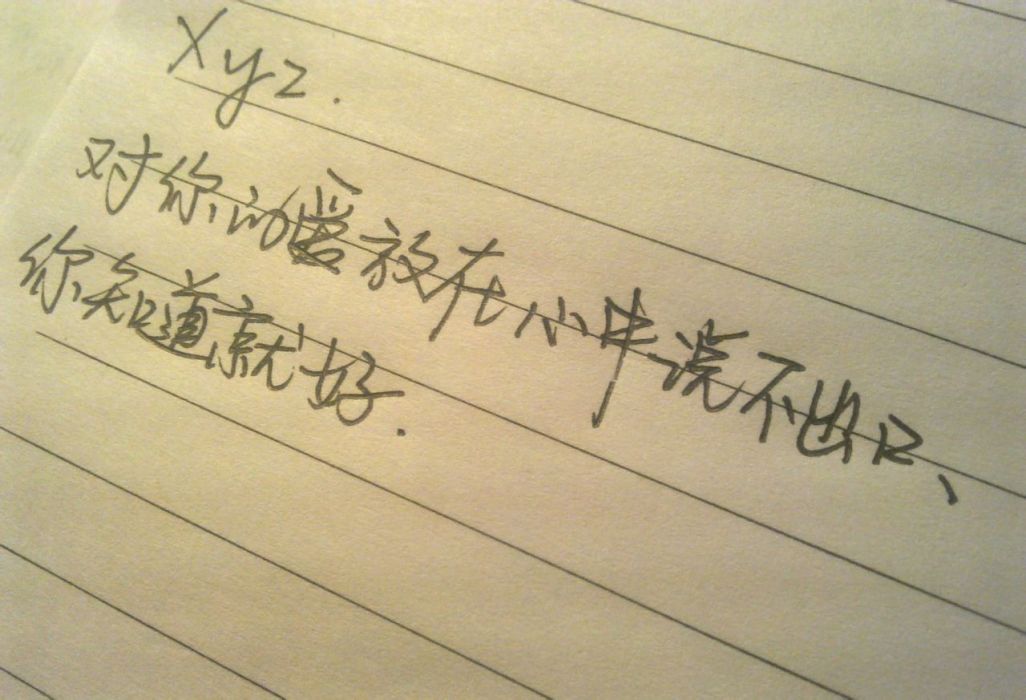 Xyz.
对你的爱放在心中说不出口、
你知道就好.